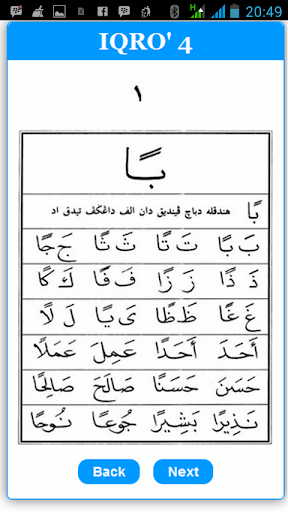 H 20:49
IQRO' 4
١
بًا
بًا هندقله دباچ ڤينديق دان الف داڠݢڤ تيدق اد
بَ بًا تَ تًا ثَ ثًا جَ جًا
ذَ ذًا زَ زًا فَ فًا كَ كًا
غَ غًا ظَ ظًا يَ يًا لَ لًا
أَحَدَ أَحَدًا عَمِلَ عَمَلًا
حَسَنَ حَسَنًا صَالَحَ صَالِحًا
نَذِيرًا بَشِيرًا جُوعًا نُوحًا
Back Next